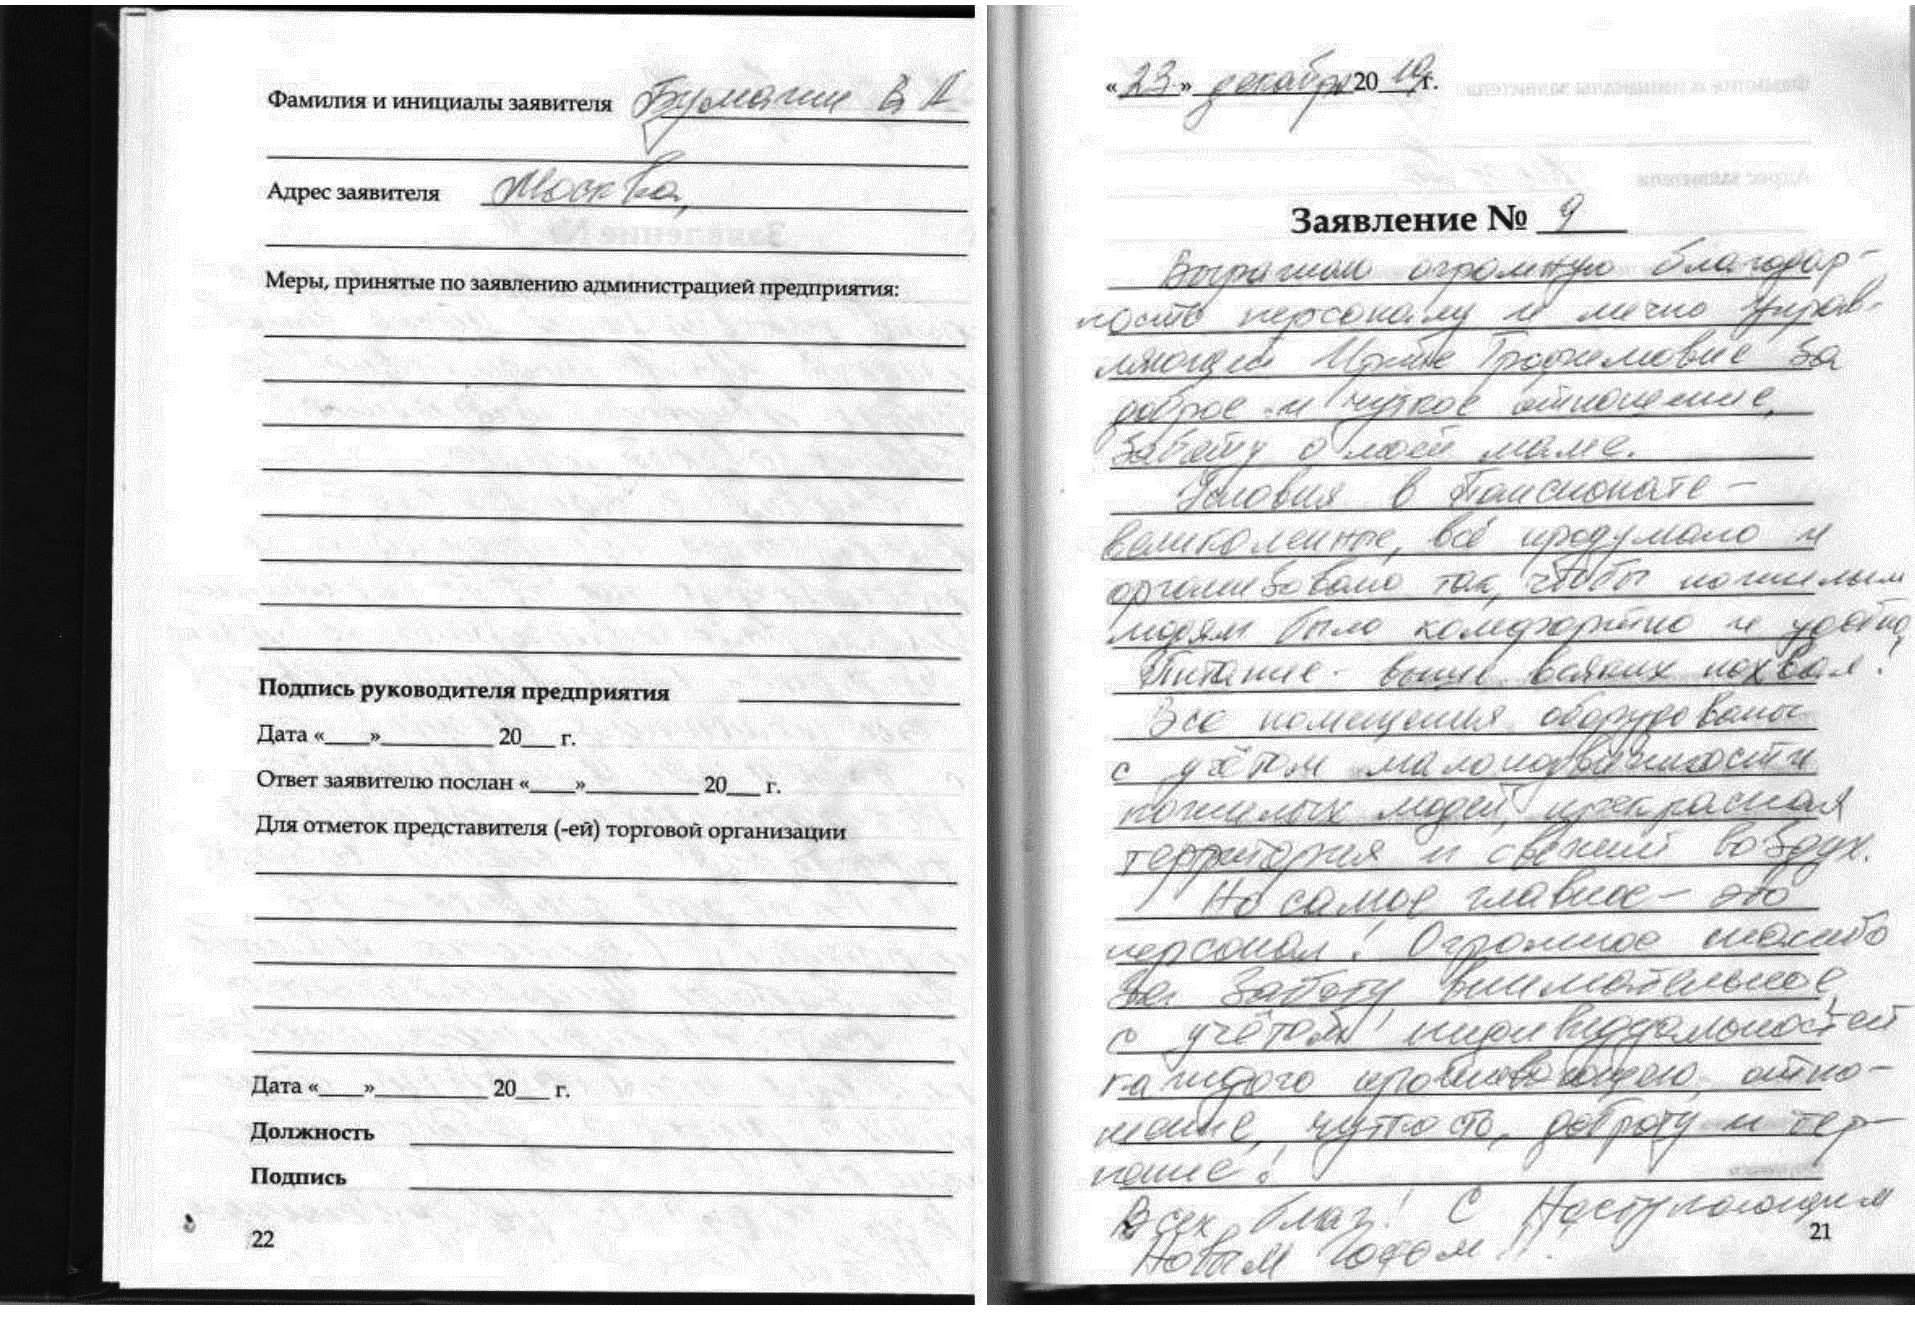 Фамилия и инициалы заявителя Бумагин В А
Адрес заявителя Москва,
Меры, принятые по заявлению администрацией предприятия:
Подпись руководителя предприятия
Дата «____»__________ 20___ г.
Ответ заявителю послан «____»__________ 20___ г.
Для отметок представителя (-ей) торговой организации
Дата «____»__________ 20___ г.
Должность
Подпись
22
«23» декабря 2019 г.
Заявление № 9
Выражаю огромную благодар-
ность персоналу и лично управ-
ляющей Ирине Трофимовне за
доброе и чуткое отношение,
заботу о моей маме.
Условия в пансионате -
великолепные, всё продумано и
организовано так, чтобы пожилым
людям было комфортно и удобно,
Питание - выше всяких похвал!
Все помещения оборудованы
с учётом малоподвижности
пожилых людей, прекрасная
территория и свежий воздух.
Но самое главное - это
персонал! Огромное спасибо
за заботу внимательное,
с учётом индивидуальностей
каждого проживающего, отно-
шение, чуткость, доброту и тер-
пение!
Всех благ! С Наступающим
Новым годом!!
21